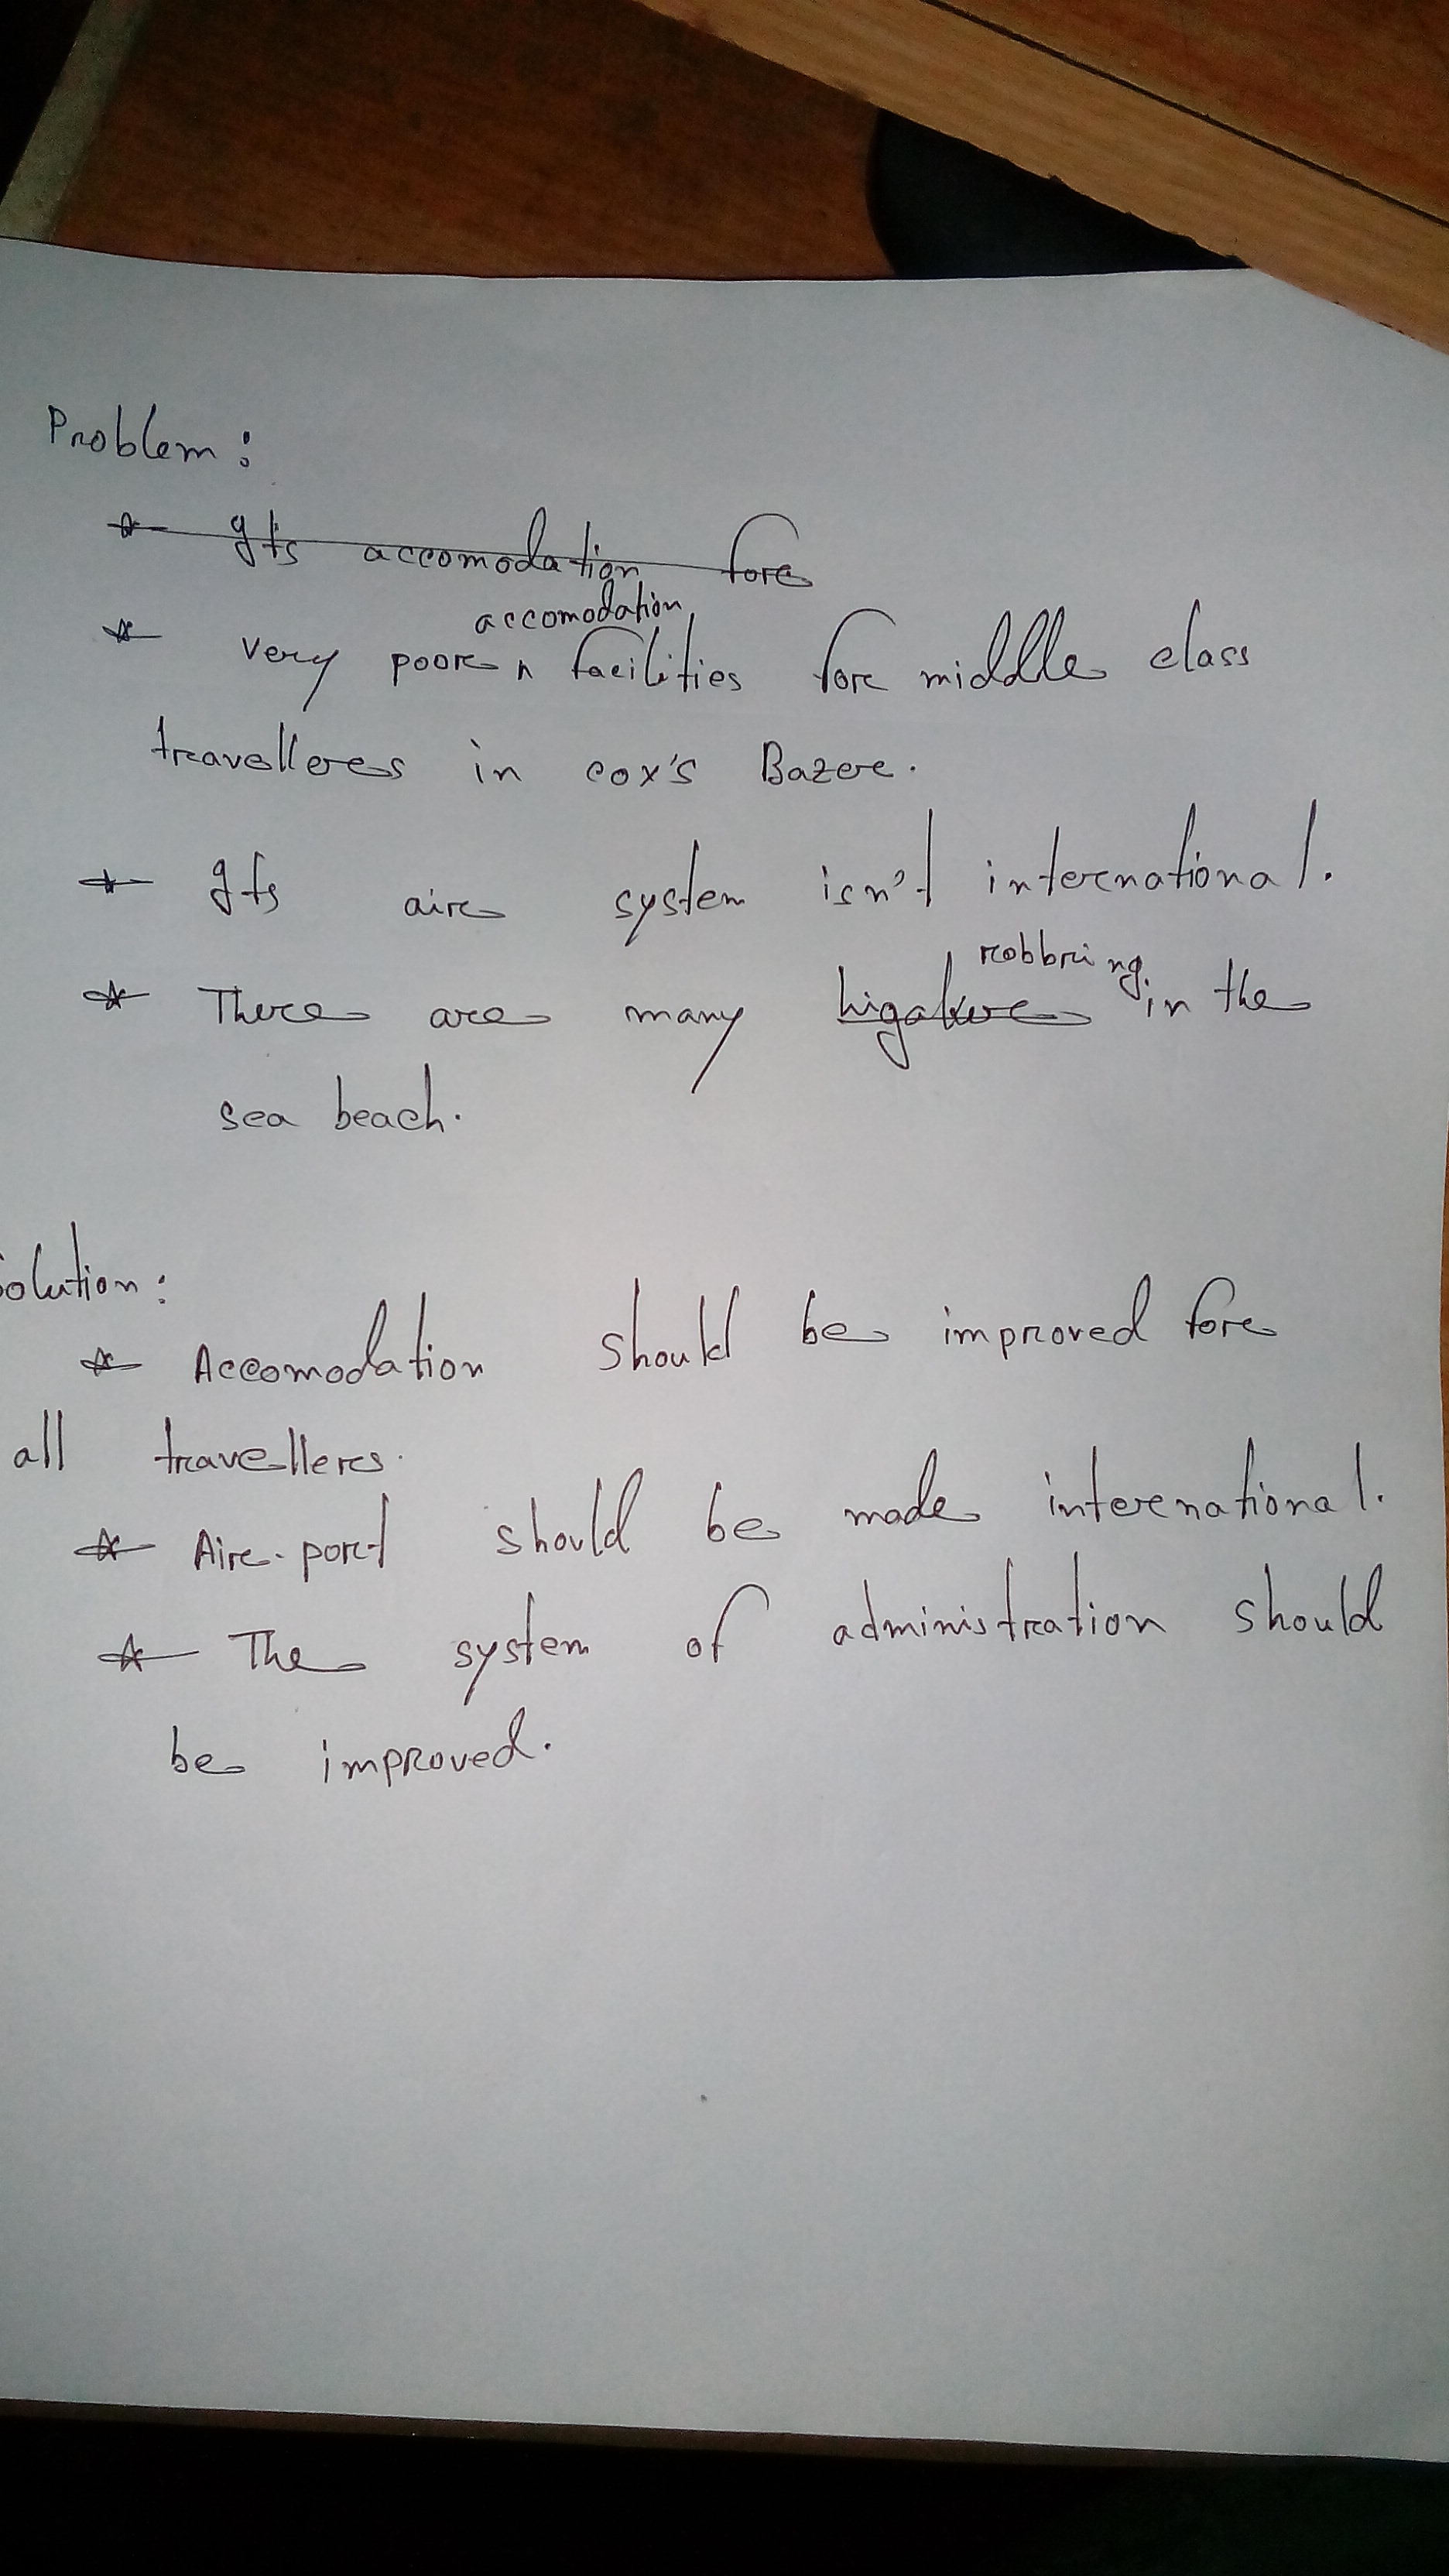 Problem:
* Its accomodation for
accomodation
* very poor facilities for middle class
travellers in cox's Bazer.
* Its air system isn't international.
robbring
* There are many in the
sea beach.
Solution:
* Accomodation should be improved for
all travellers.
* Air-port should be made international.
* The system of administration should
be improved.